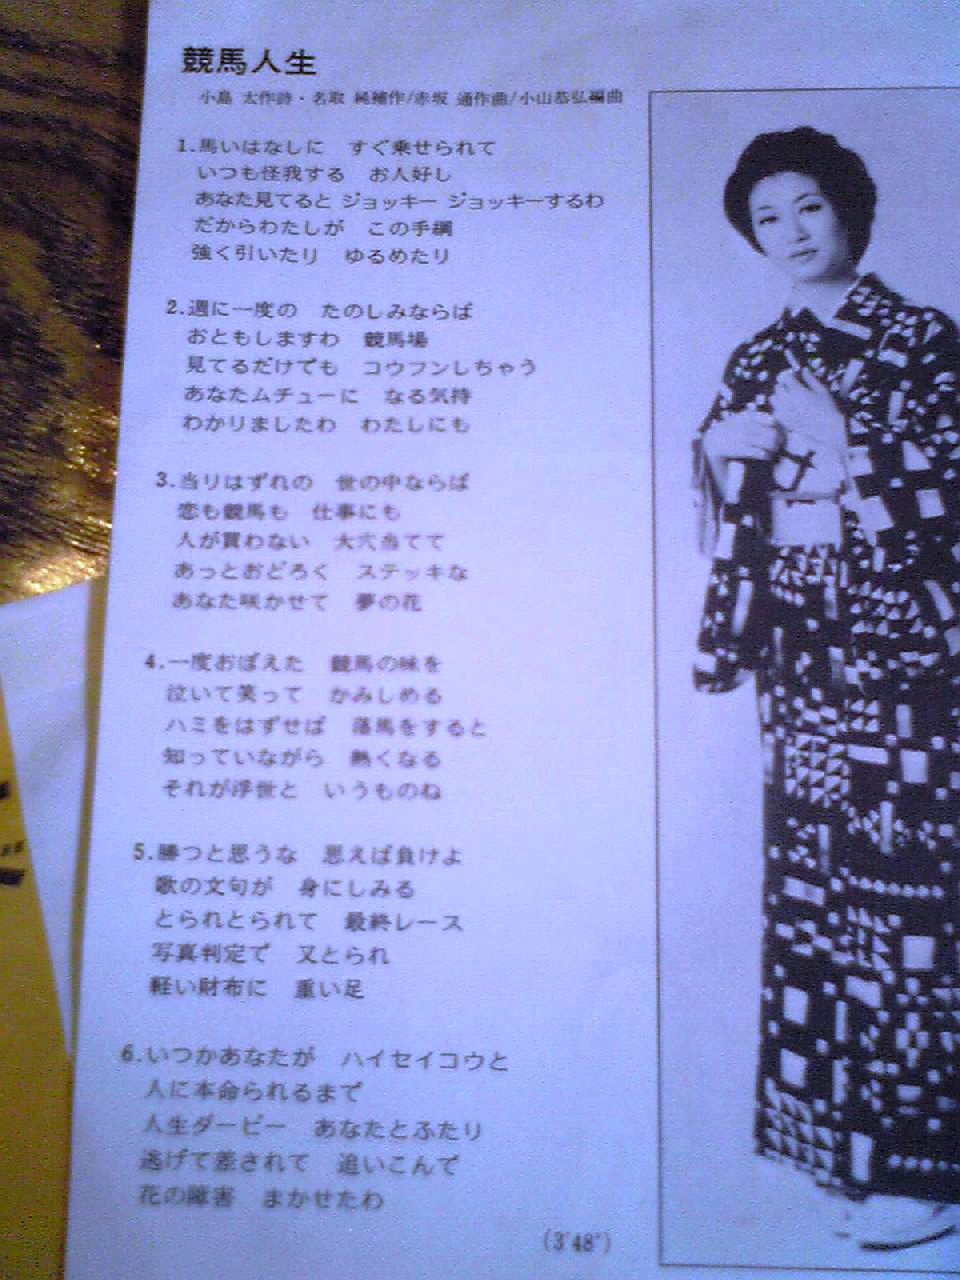 競馬人生
小島 太作詩・名取 純補作/赤坂 通作曲/小山恭弘編曲
1.馬いはなしに すぐ乗せられて
いつも怪我する お人好し
あなた見てると ジョッキー ジョッキーするわ
だからわたしが この手綱
強く引いたり ゆるめたり
2.週に一度の たのしみならば
おともしますわ 競馬場
見てるだけでも コウフンしちゃう
あなたムチューに なる気持
わかりましたわ わたしにも
3.当りはずれの 世の中ならば
恋も競馬も 仕事にも
人が買わない 大穴当てて
あっとおどろく ステッキな
あなた咲かせて 夢の花
4.一度おぼえた 競馬の味を
泣いて笑って かみしめる
ハミをはずせば 落馬をすると
知っていながら 熱くなる
それが浮世と いうものね
5.勝つと思うな 思えば負けよ
歌の文句が 身にしみる
とられとられて 最終レース
写真判定で 又とられ
軽い財布に 重い足
6.いつかあなたが ハイセイコウと
人に本命られるまで
人生ダービー あなたとふたり
逃げて差されて 追いこんで
花の障害 まかせたわ
(3'48")